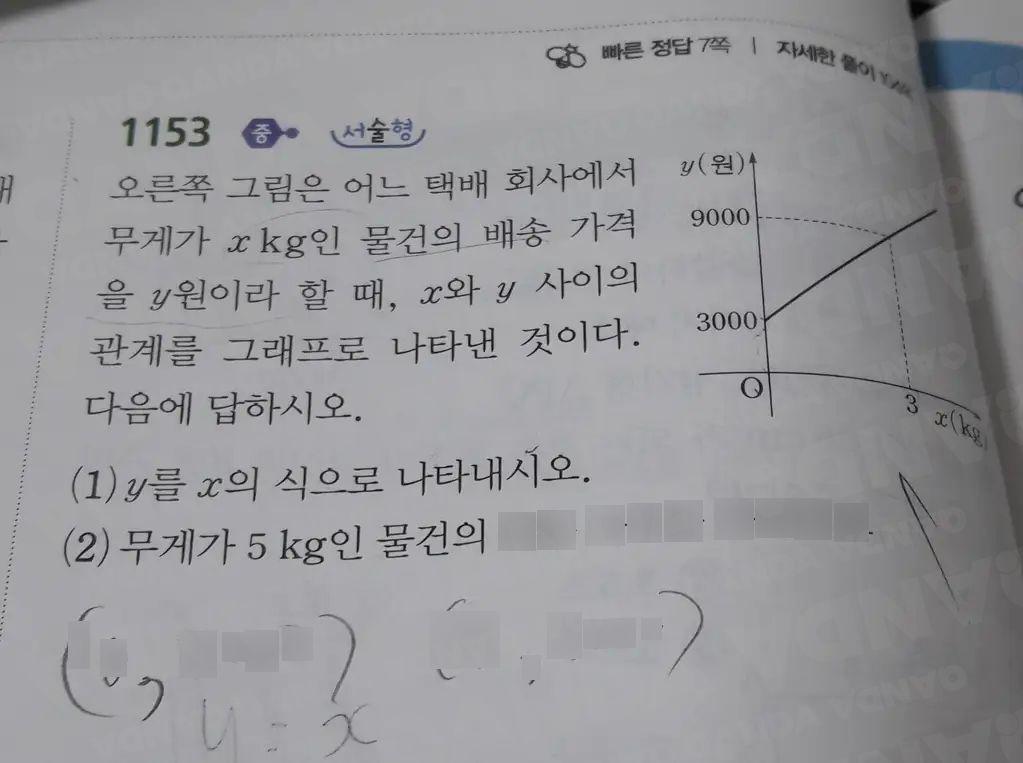 빠른 정답 7쪽 | 자세한 풀이
1153 중 서술형
오른쪽 그림은 어느 택배 회사에서
무게가 x kg인 물건의 배송 가격
을 y원이라 할 때, x와 y 사이의
관계를 그래프로 나타낸 것이다.
다음에 답하시오.
y(원)
9000
3000
O
3
x(kg)
(1) y를 x의 식으로 나타내시오.
(2) 무게가 5 kg인 물건의
y = x